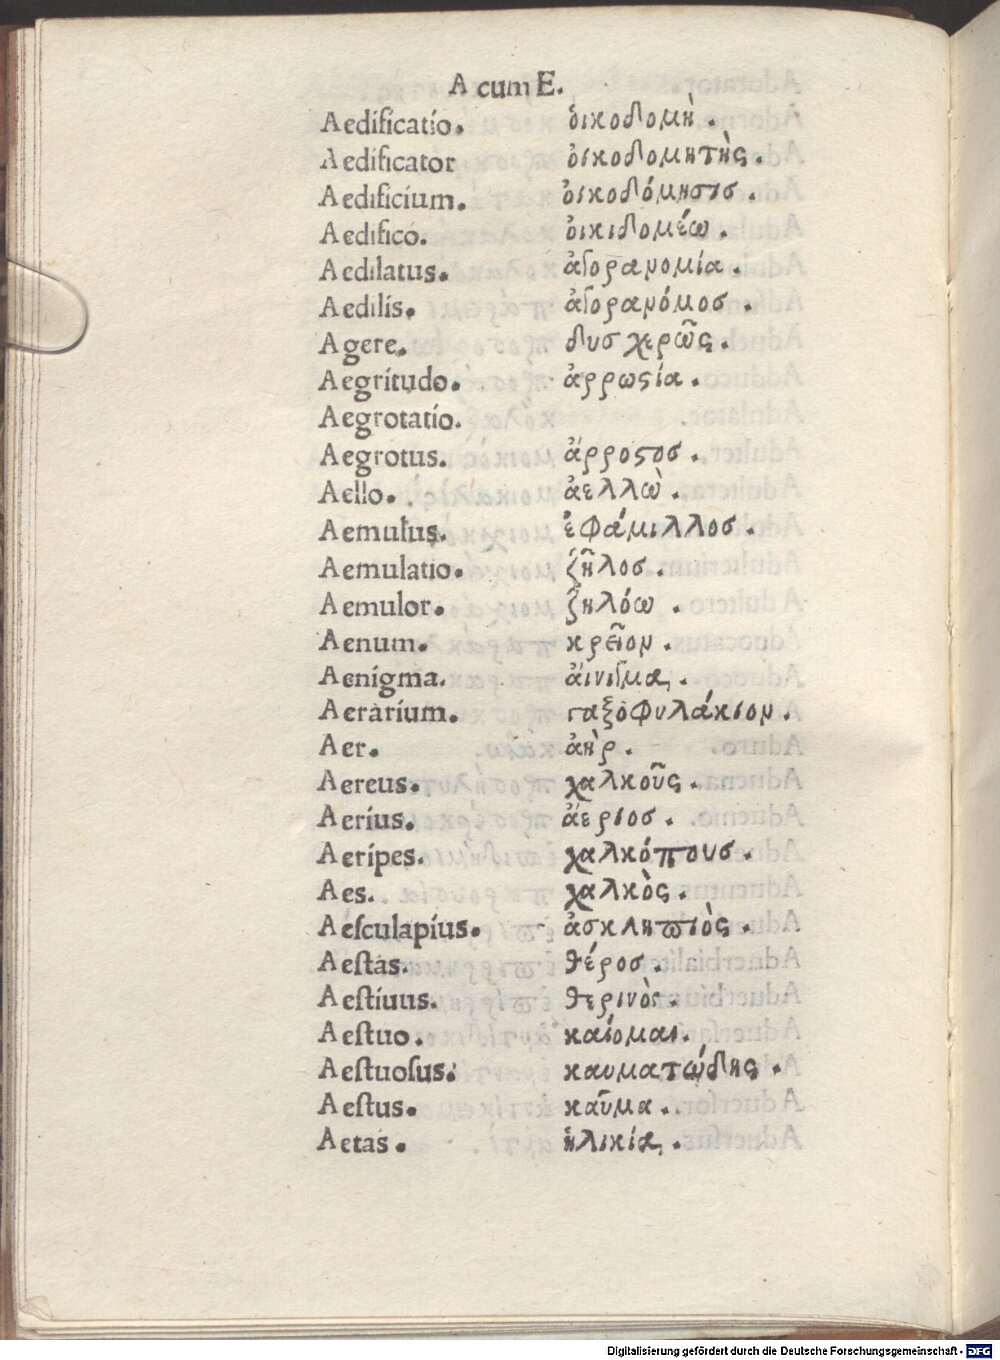 A cum E.
Aedificatio. ὀικοδομὴ.
Aedificator ὀικοδομητὴς.
Aedificium. ὀικοδόμησισ.
Aedifico. ὀικιδομέω.
Aedilatus. ἀγορανομία.
Aedilis. ἀγορανόμοσ.
Aegere. δυσχερῶς.
Aegritudo. ἀρρωςία.
Aegrotatio.
Aegrotus. ἄρροςοσ.
Aello. ἀελλὼ.
Aemulus. ἐφάμιλλοσ.
Aemulatio. ζῆλοσ.
Aemulor. ζηλόω.
Aenum. κρεῖον.
Aenigma. ἄινιγμα.
Aerarium. γαξοφυλάκιον.
Aer. ἀὴρ.
Aereus. χαλκοῦς.
Aerius. ἀέριοσ.
Aeripes. χαλκόπουσ.
Aes. χαλκὸς.
Aeſculapius. ἀσκληπιὸς.
Aeſtas. θέροσ.
Aeſtiuus. θερινὸς.
Aeſtuo. καίομαι.
Aeſtuoſus. καυματώδης.
Aeſtus. καῦμα.
Aetas. ἡλικία.
Digitalisierung gefördert durch die Deutsche Forschungsgemeinschaft - DFG